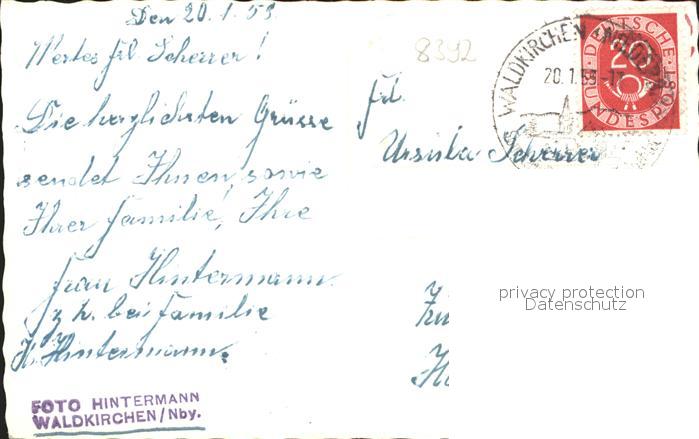 Den 20.1.53.
Wertes frl. Scherrer!
Die herzlichsten Grüsse
sendet Ihnen, sowie
Ihrer Familie, Ihre
Frau Hintermann
z. h. bei Familie
H. Hintermann.
FOTO HINTERMANN
WALDKIRCHEN/Nby.
8392
WALDKIRCHEN
20.1.53-17
DEUTSCHE
20
BUNDESPOST
frl.
Ursula Scherrer
privacy protection
Datenschutz